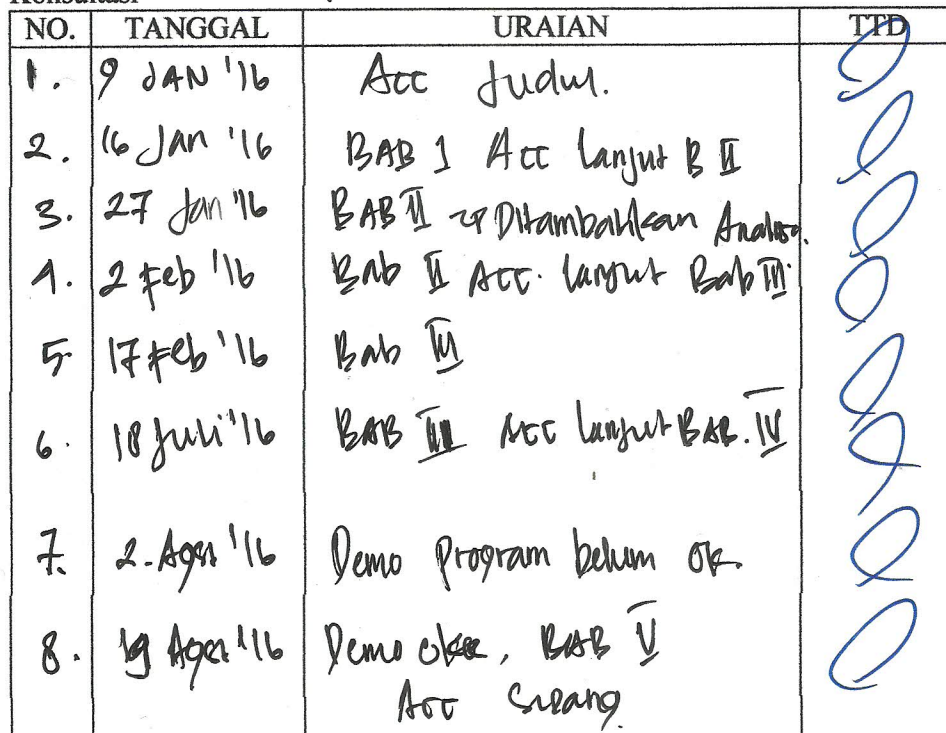 NO. TANGGAL URAIAN TTD
1. 9 JAN '16 Acc Judul.
2. 16 Jan '16 BAB 1 Acc lanjut B II
3. 27 Jan '16 BAB II → Ditambahkan Analisa.
4. 2 Feb '16 Bab II Acc. lanjut Bab III
5. 17 Feb '16 Bab III
6. 18 Juli '16 BAB III Acc lanjut BAB. IV
7. 2. Agus '16 Demo program belum ok.
8. 19 Agus '16 Demo okee, BAB V
Acc Sidang